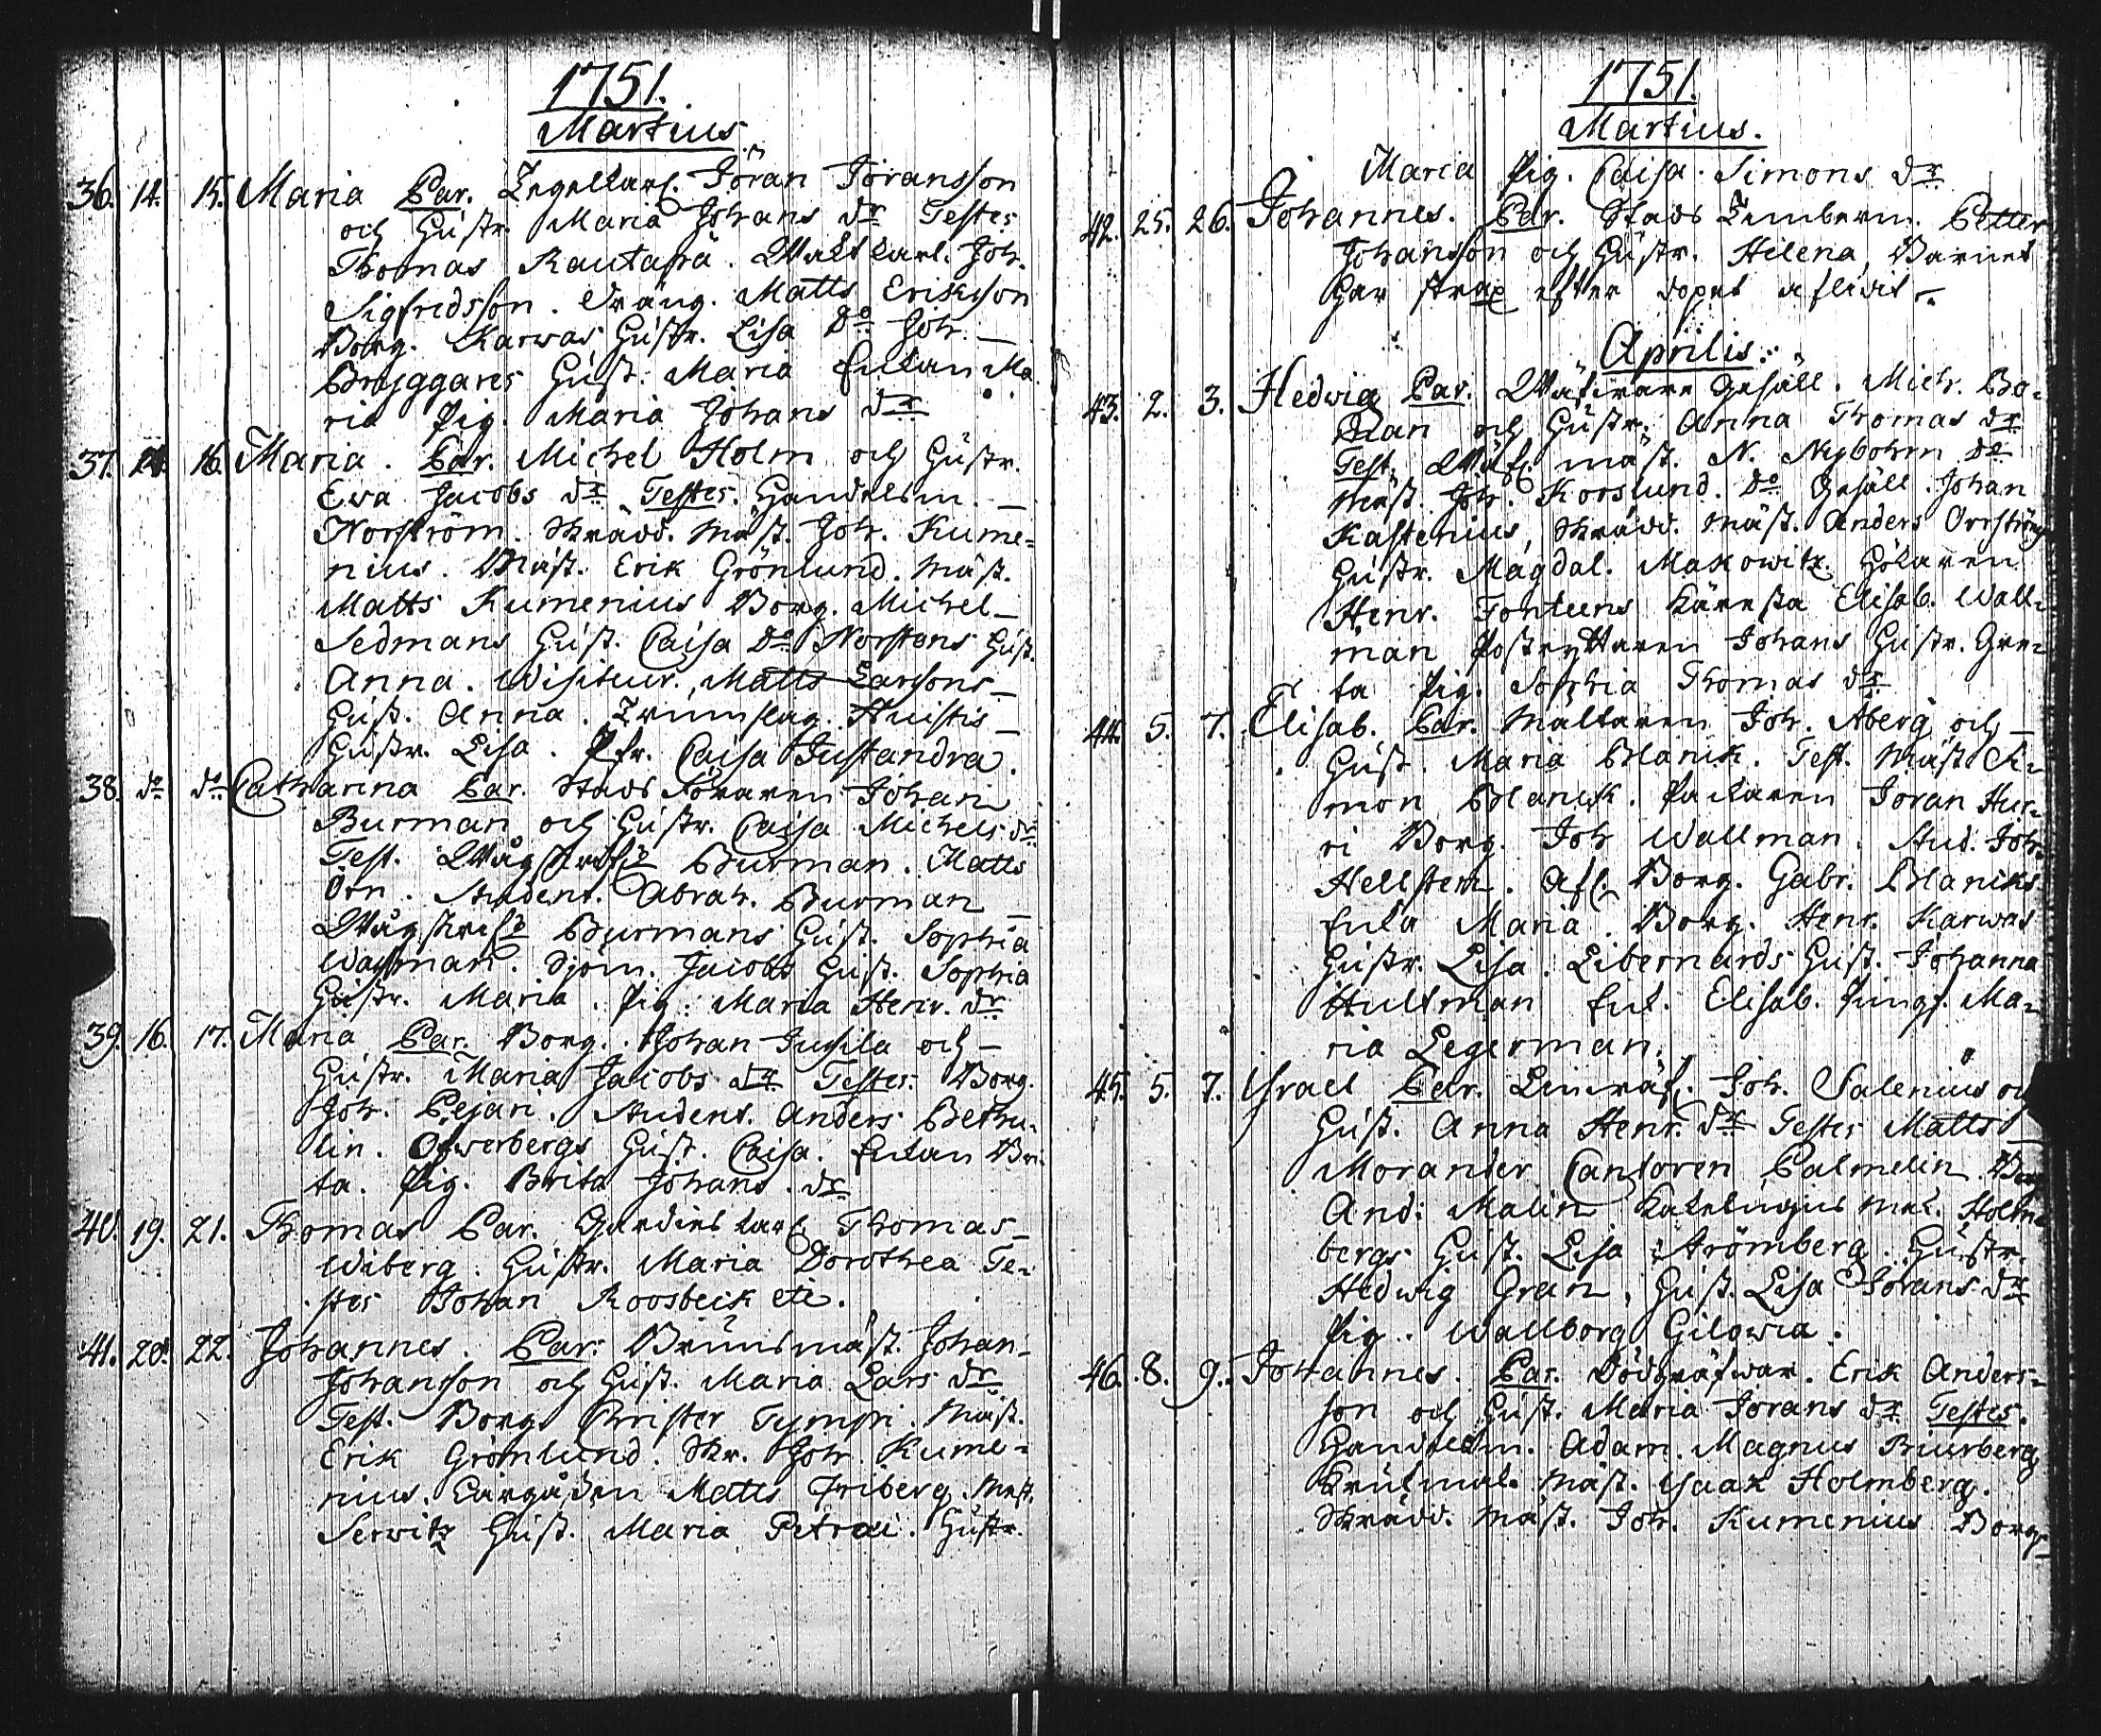 1751.
Martius
36. 14. 15. Maria Par. Tegelkarl. Jöran Jöransson
och Hustr. Maria Johans dr Testes
Thomas Rautapä. Waktkarl. Joh.
Sigfredsson. Dräng. Matts Eriksson
Borg. Karwas Hustr. Lisa Do Joh.
Bryggares Hust. Maria Enkan Ma
ria Pig. Maria Johans dr
37. 14. 16. Maria. Par. Michel Holm och Hustr.
Ewa Jacobs dr Testes. Handelsm.
Norström. Skrädd. Mäst. Joh. Kume-
nius. Mäst. Erik Grönlund. Mäst.
Matts Kumenius Borg. Michel
Sedmans Hust. Caisa Do Norstens Hust.
Anna. Wisiteur. Matts Larsons
Hust. Anna. Trumslag. Huistis
Hustr. Lisa. Jfr. Caisa Justandra.
38. do do Catharina Par. Stads Johan
Burman och Hustr. Caisa Michels dr
Test. Burman. Matts
Örn. Student. Abrah. Burman
Burmans Hust. Sophia
Wassman. Sjöm. Jacobs Hust. Sophia
Hustr. Maria. Pig. Maria Henr. dr
39. 16. 17. Maria Par. Borg. Johan Jusila och
Hustr. Maria Jacobs dr Testes. Borg.
Joh. Pejari. Student. Anders Bethu-
lin. Öfwerbergs Hust. Caisa. Enkan Bri-
ta. Pig. Brita Johans. dr
40. 19. 21. Thomas Par. Gardies karl Thomas
Wiberg. Hustr. Maria Dorothea Te-
stes Johan Roosbeck etc.
41. 20. 22. Johannes. Par. Mäst. Johan
Johansson och Hust. Maria Lars dr
Test. Borg. Christer Tympi. Mäst.
Erik Grönlund. Skr. Joh. Kume-
nius. Matts Friberg. Mäst.
Serwitz Hust. Maria Petraei. Hustr.
1751.
Martius.
Maria Pig. Caisa. Simons dr
42. 25. 26. Johannes. Par. Stads Timberm. Petter
Johansson och Hustr. Helena, Barnet
har strax efter dopet aflidit
Aprilis.
43. 2. 3. Hedwig Par. Wäfware Gesäll. Mich. Bo-
man och Hustr. Anna Thomas dr
Test. Wäf. mäst. N. Nybohm Do
Mäst. Joh. Kooslund. Do Gesäll. Johan
Kastenius, Skrädd. Mäst. Anders Orrström
Hustr. Magdal. Makowitz.
Henr. Fonteens Käresta Elisab. Wall-
man Postryttaren Johans Hustr. Gre-
ta Pig. Sophia Thomas dr
44. 5. 7. Elisab. Par. Mältaren Joh. Åberg och
Hust. Maria Blanck. Test. Mäst. Si-
mon Blanck. Packaren Joran Hur-
ri Borg. Joh Wallman. Stud. Joh.
Hellsten. Afl. Borg. Gabr. Blancks
Enka Maria. Borg. Henr. Karwas
Hustr. Lisa. Libernards Hust. Johanna
Hultman Enk. Elisab. Jungf. Ma-
ria Legerman.
45. 5. 7. Israel Par. Linwäf. Joh. Salenius och
Hust. Anna Henr. dr Testes Matts
Morander Cantoren Palmelin Borg
And: Malin Holm
bergs Hust. Lisa Strömberg. Hustr.
Hedwig Gran, Hust. Lisa Jörans dr
Pig. Wallborg Gilowia.
46. 8. 9. Johannes. Par. Dödgräfwar. Erik Anders-
son och Hust. Maria Jorans dr Testes.
Handelsm. Adam. Magnus Biurberg
Krukmak. Mäst. Isaak Holmberg.
Skrädd. Mäst. Joh. Kumenius Borg-